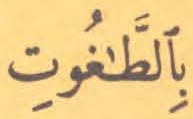 بِٱلطَّـٰغُوتِ